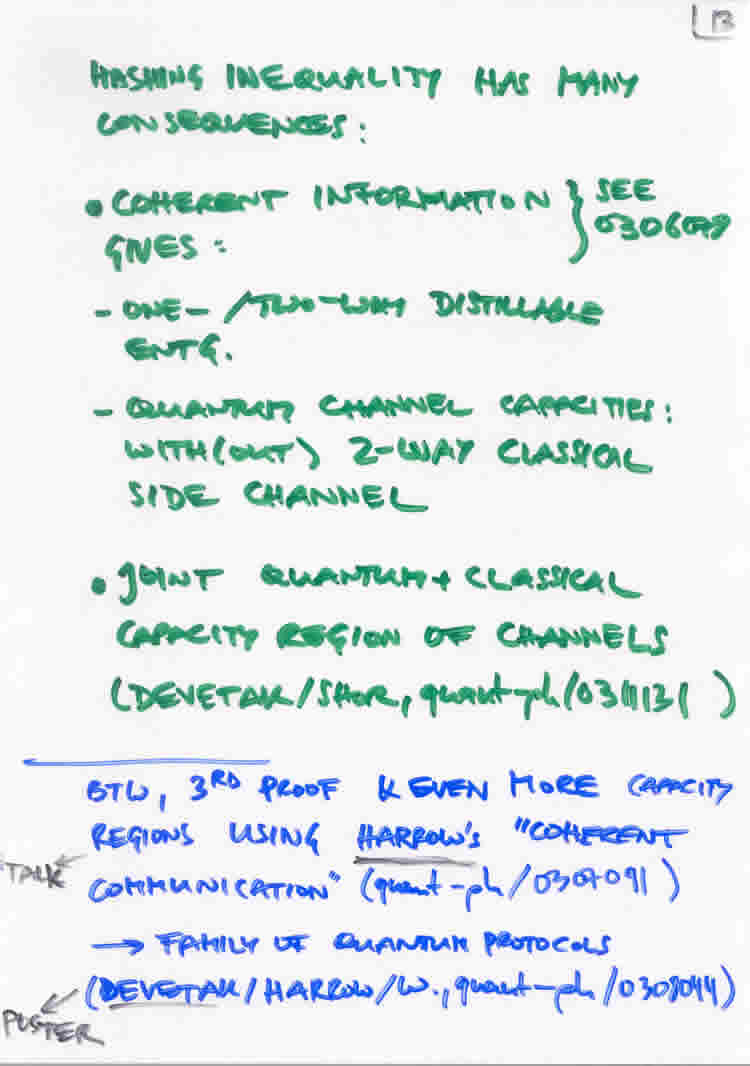 13
HASHING INEQUALITY HAS MANY
CONSEQUENCES:
• COHERENT INFORMATION } SEE
GIVES: 0306078
- ONE- /TWO-WAY DISTILLABLE
ENTG.
- QUANTUM CHANNEL CAPACITIES:
WITH(OUT) 2-WAY CLASSICAL
SIDE CHANNEL
• JOINT QUANTUM + CLASSICAL
CAPACITY REGION OF CHANNELS
(DEVETAK/SHOR, quant-ph/0311131)
BTW, 3RD PROOF & EVEN MORE CAPACITY
REGIONS USING HARROW's "COHERENT
TALK
COMMUNICATION" (quant-ph/0307091)
→ FAMILY OF QUANTUM PROTOCOLS
(DEVETAK/HARROW/W., quant-ph/0308044)
POSTER